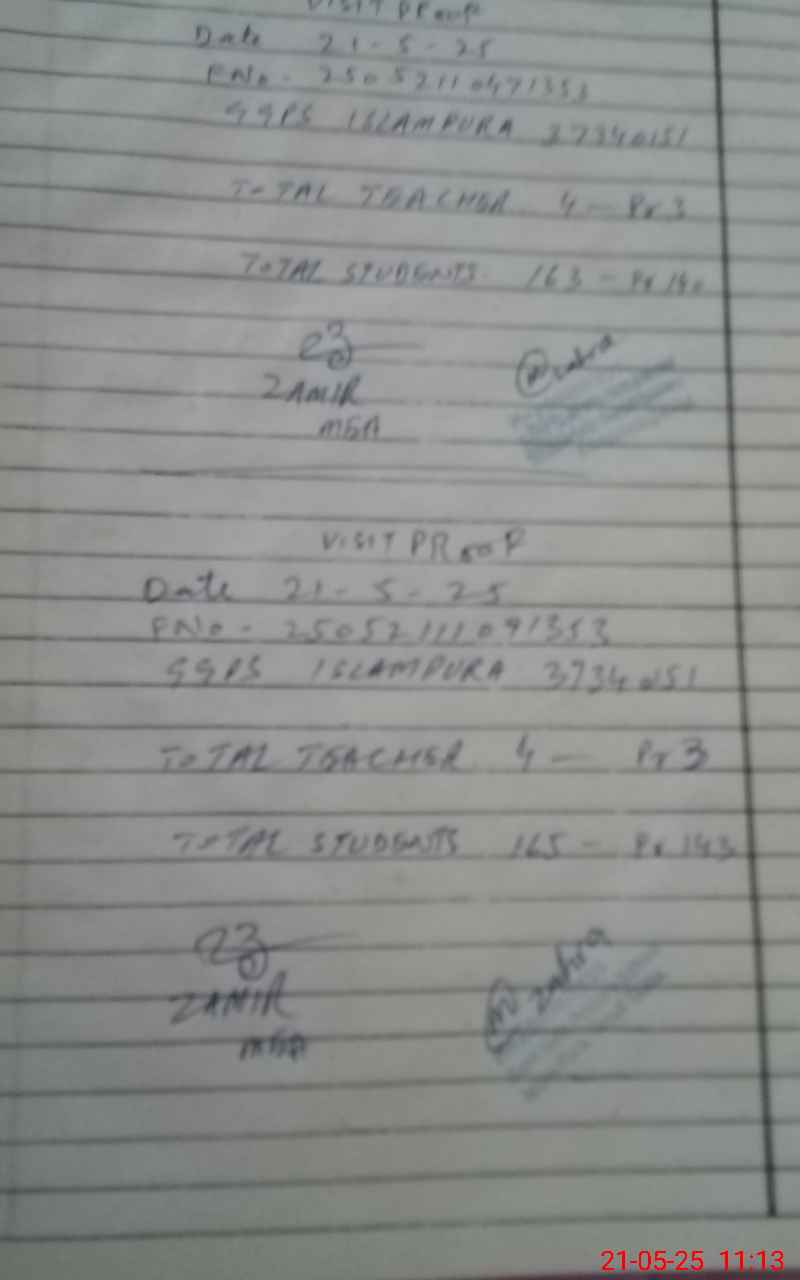 VISIT PROOF
Date 21-5-25
FNo - 25052110471353
GGPS ISLAMPURA 37340151
TOTAL TEACHER 4 - Pr 3
TOTAL STUDENTS 163 - Pr 140
ZAMIR
MEA
VISIT PROOF
Date 21-5-25
FNo - 25052111091353
GGPS ISLAMPURA 37340151
TOTAL TEACHER 4 - Pr 3
TOTAL STUDENTS 165 - Pr 143
zahra
ZAMIR
MEA
21-05-25 11:13